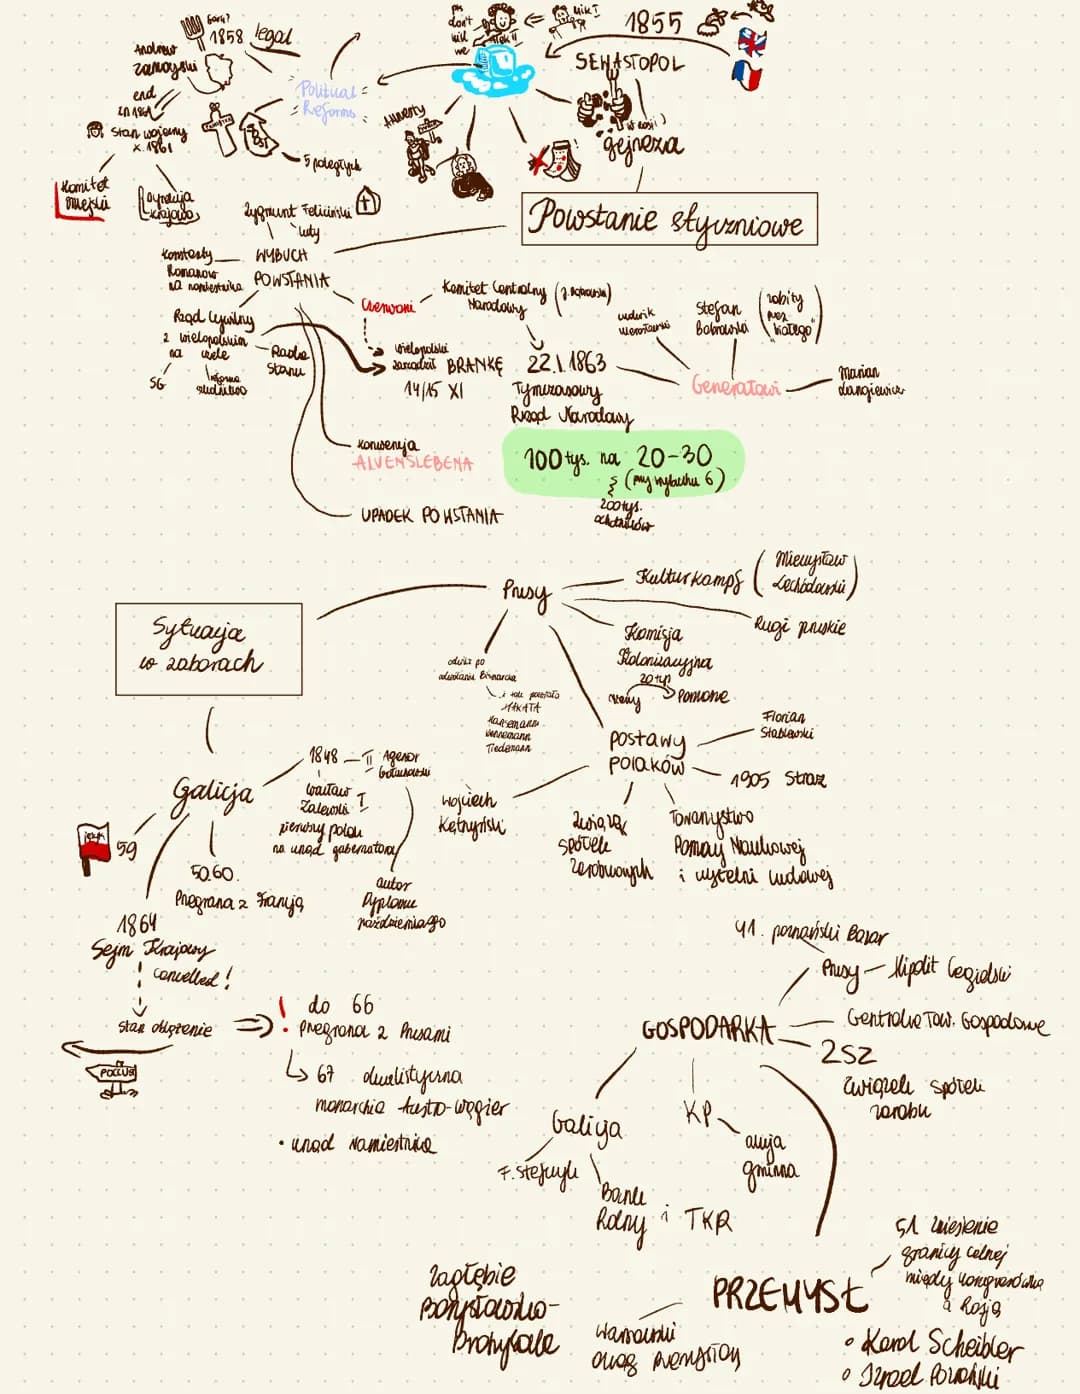 1858 legal
Andrzej
zamoyski
end
in 1861
stan wojenny
x. 1861
Komitet
miejski
Dyrekcja
krajowa
Political
Reforms
5 poległych
ps
don't
kill
me
Amnesty
1855
SEWASTOPOL
gejneza
Powstanie styczniowe
Zygmunt Feliciński
luty
WYBUCH
POWSTANIA
Konstanty
Romanow
na namiestnika
Rząd Cywilny
z wielopolskim
na czele
SG
Rada
Stanu
Czerwoni
Komitet Centralny
Narodowy
wielopolski
zarządził BRANKĘ
14/15 XI
22.1.1863
Tymczasowy
Rząd Narodowy
Stefan
Bobrowski
Generałowi
Marian
Langiewicz
konwencja
ALVENSLEBENA
100 tys. na 20-30
(przy wybuchu 6)
200 tys.
ochotników
UPADEK POWSTANIA
Sytuacja
w zaborach
Prusy
Kulturkampf
Rugi pruskie
Komisja
Kolonizacyjna
Pomorze
HAKATA
Hansemann
Kennemann
Tiedemann
postawy
polaków
Florian
Stablewski
1905 Straż
Wojciech
Kętrzyński
Związek
spółek
zarobkowych
Towarzystwo
Pomocy Naukowej
i czytelni ludowej
Galicja
język
59
50.60.
Przegrana z Francją
1848 II Agenor
Gołuchowski
wacław
Zaleski I
pierwszy polak
na urząd gubernatora
autor
Dyplomu
październikowego
1864
Sejm Krajowy
cancelled!
stan oblężenie
! do 66
przegrana z Prusami
67 dualistyczna
monarchia Austro-węgier
• urząd namiestnika
GOSPODARKA
41. poznański Bazar
Prusy Hipolit Cegielski
Centralne Tow. Gospodarcze
ZSZ
związek spółek
zarobk
Galicja
F. Stefczyk
Bank
Rolny i TKR
KP
gminna
PRZEMYSŁ
51 zniesienie
granicy celnej
między kongresówką
a Rosją
• Karol Scheibler
• Izrael Poznański
Warszawski
okręg przemysłowy
Zagłębie
Borysławsko-